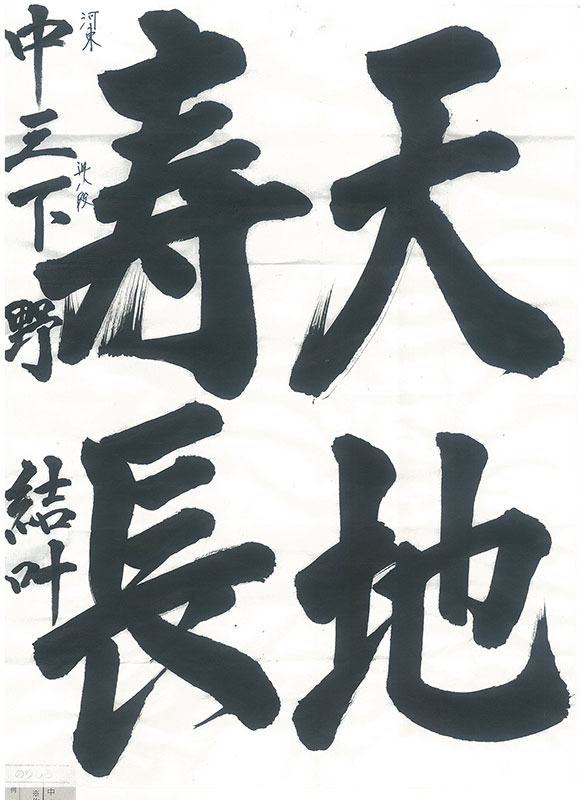 天地
寿長
河東
準八段
中三下野結叶
のりしろ